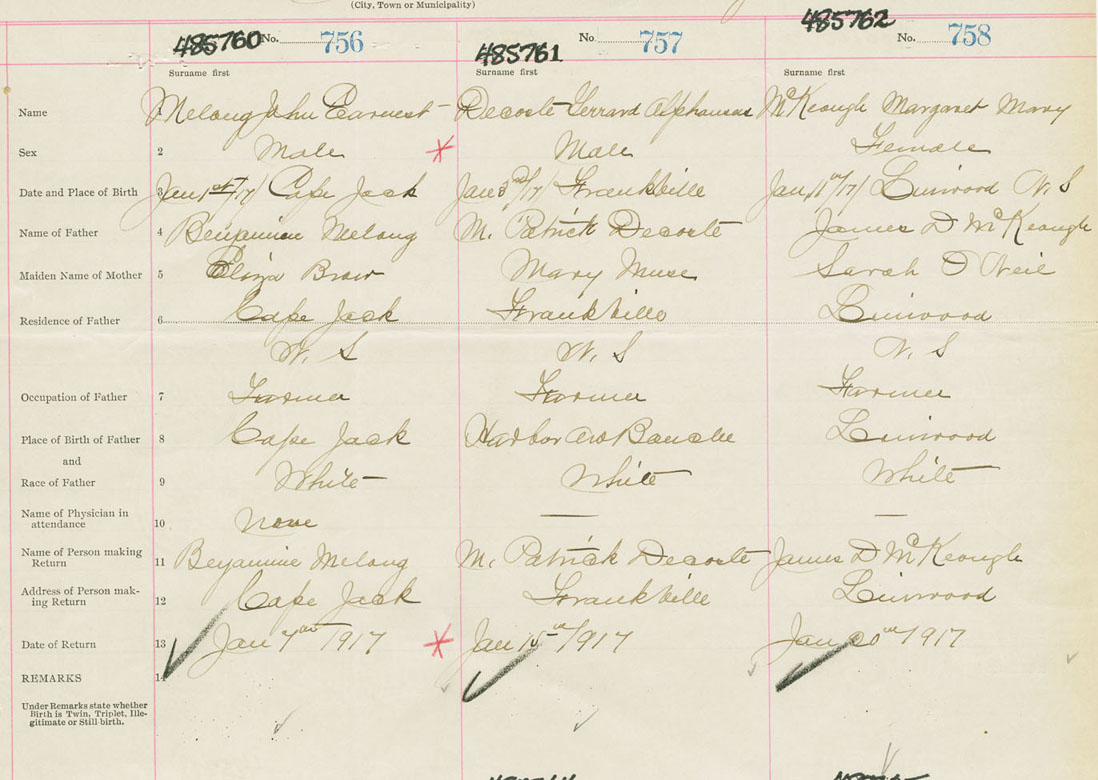 (City, Town or Municipality)
485760 No. 756 485761 No. 757 485762 No. 758
Surname first Surname first Surname first
Name 1 Melong John Earnest Decoste Gerrard Alphonsus McKeough Margaret Mary
Sex 2 Male Male Female
Date and Place of Birth 3 Jan 1st/17/ Cape Jack Jan 3rd/17/ Frankville Jan 11th/17/ Linwood N. S
Name of Father 4 Benjamin Melong M. Patrick Decoste James D McKeough
Maiden Name of Mother 5 Eliza Brow Mary Muse Sarah O Neil
Residence of Father 6 Cape Jack Frankville Linwood
N. S N. S N. S
Occupation of Father 7 Farmer Farmer Farmer
Place of Birth of Father 8 Cape Jack Harbor au Bouche Linwood
and
Race of Father 9 White White White
Name of Physician in
attendance 10 None — —
Name of Person making
Return 11 Benjamine Melong M. Patrick Decoste James D McKeough
Address of Person mak-
ing Return 12 Cape Jack Frankville Linwood
Date of Return 13 Jan 7th 1917 Jan 15th/1917 Jan 20th/1917
REMARKS 14
Under Remarks state whether
Birth is Twin, Triplet, Ille-
gitimate or Still-birth.